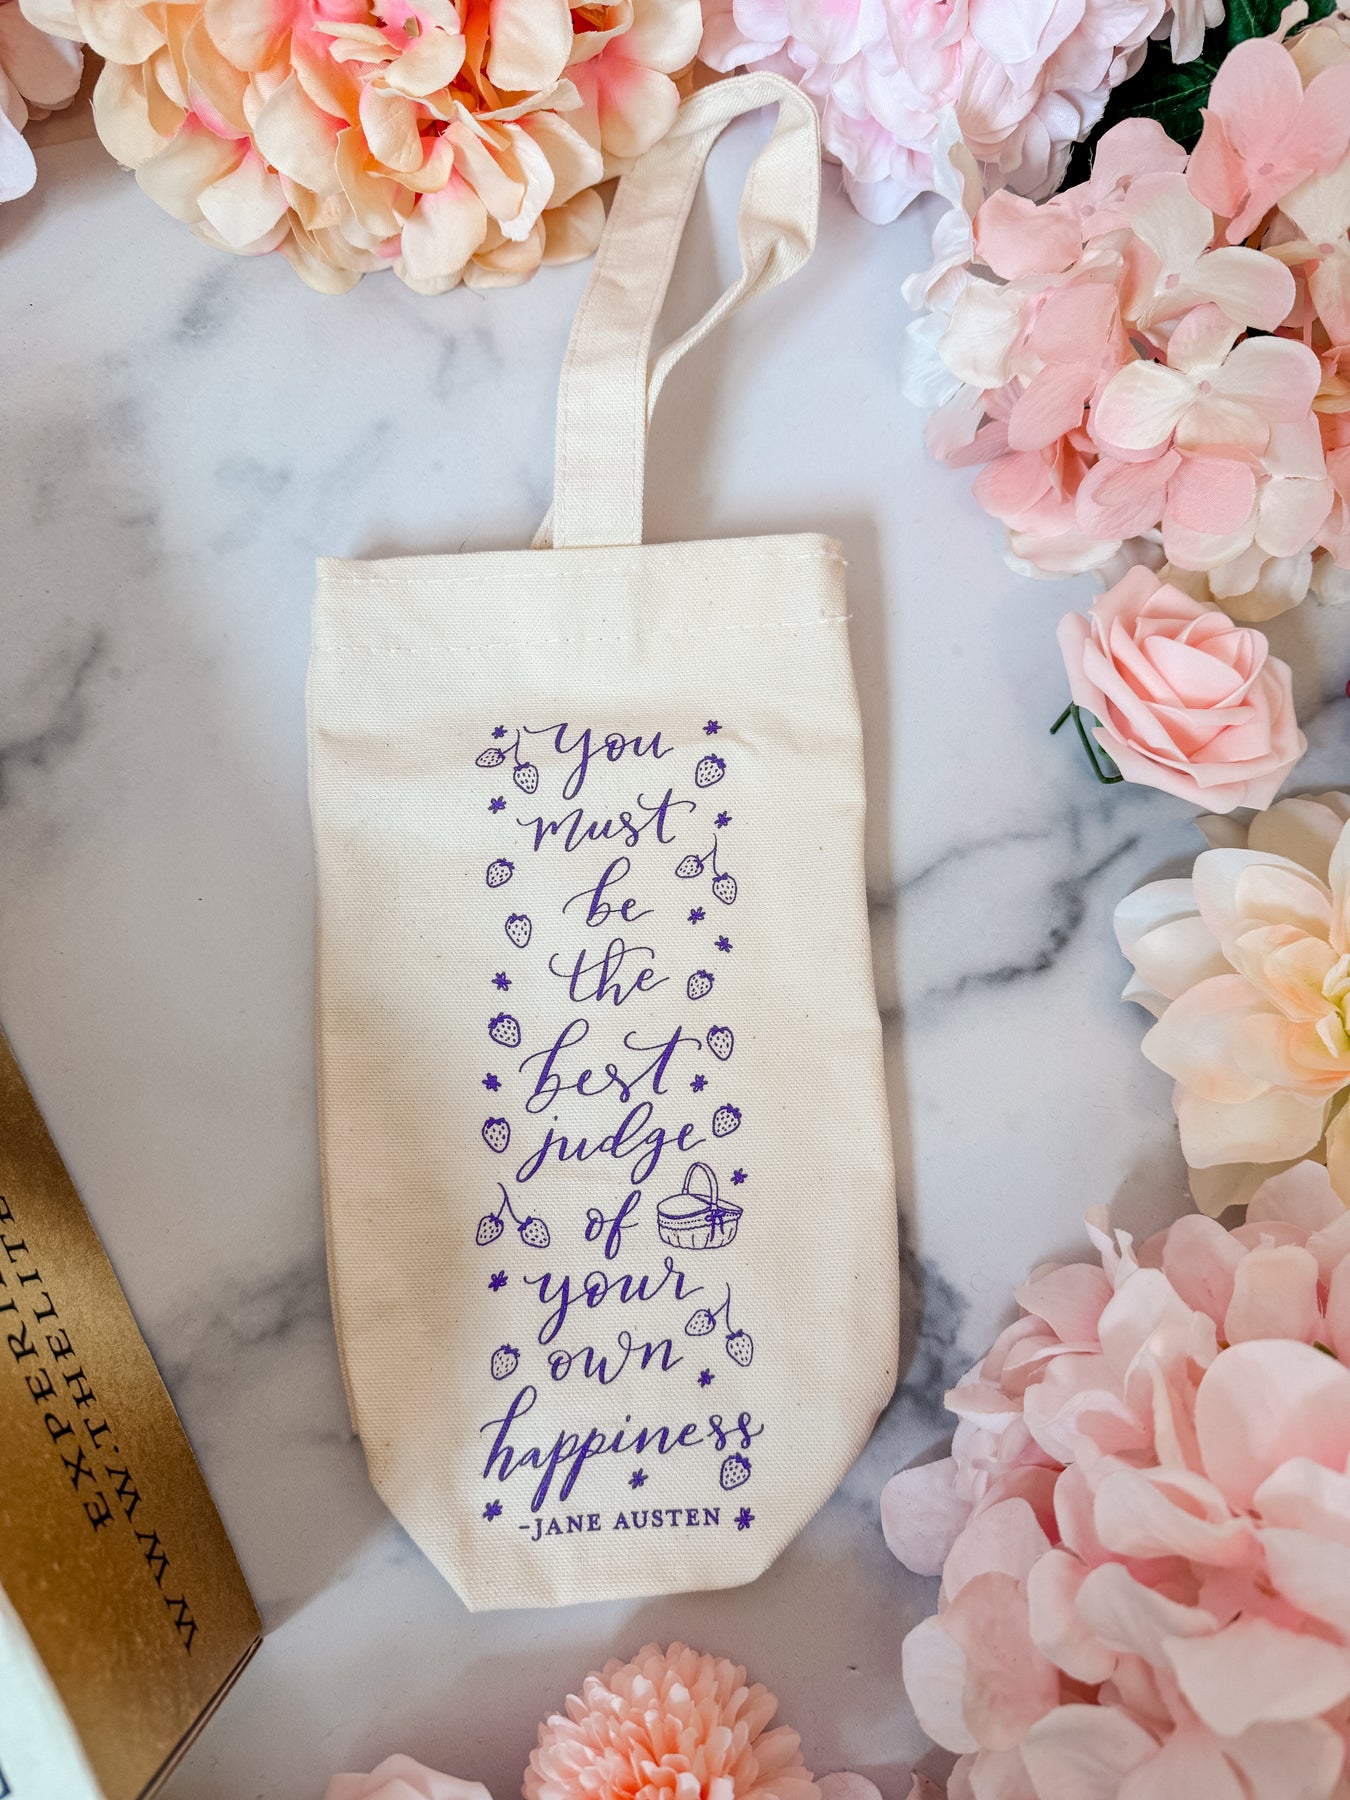 you
must
be
the
best
judge
of
your
own
happiness
-JANE AUSTEN
WWW.THELITE